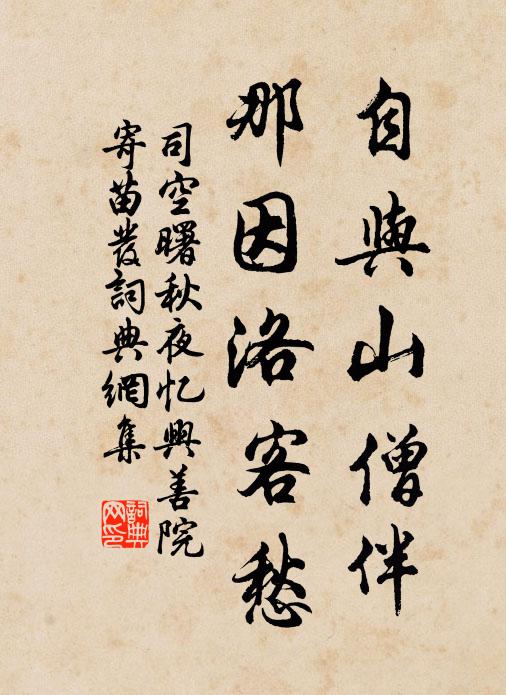 自與山僧伴
那因洛客愁
司空曙秋夜忆興善院
寄苗發詞典網集
詞典
网印